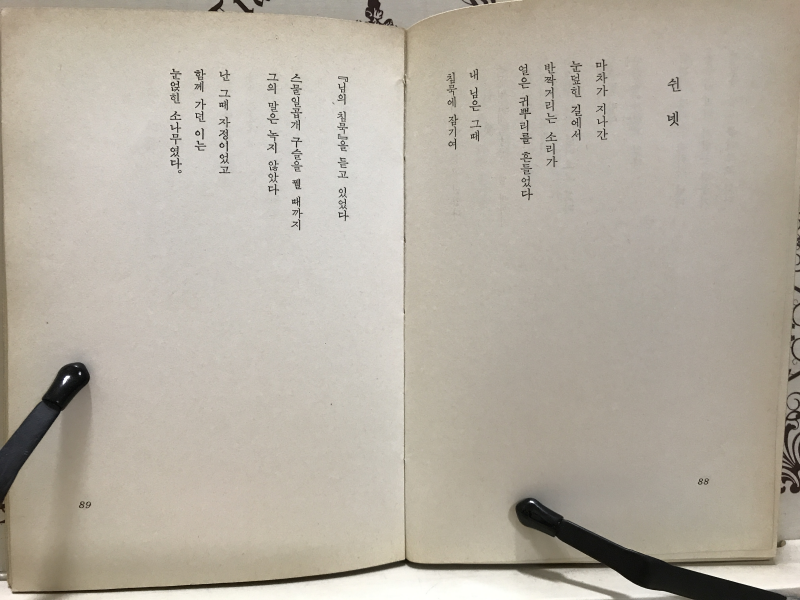 쉰 넷
마차가 지나간
눈덮힌 길에서
반짝거리는 소리가
얼은 귀뿌리를 흔들었다
내 님은 그때
침묵에 잠기여
88
『님의 침묵』을 듣고 있었다
스물일곱개 구슬을 꿸 때까지
그의 말은 녹지 않았다
난 그때 자정이었고
함께 가던 이는
눈얹힌 소나무였다。
89